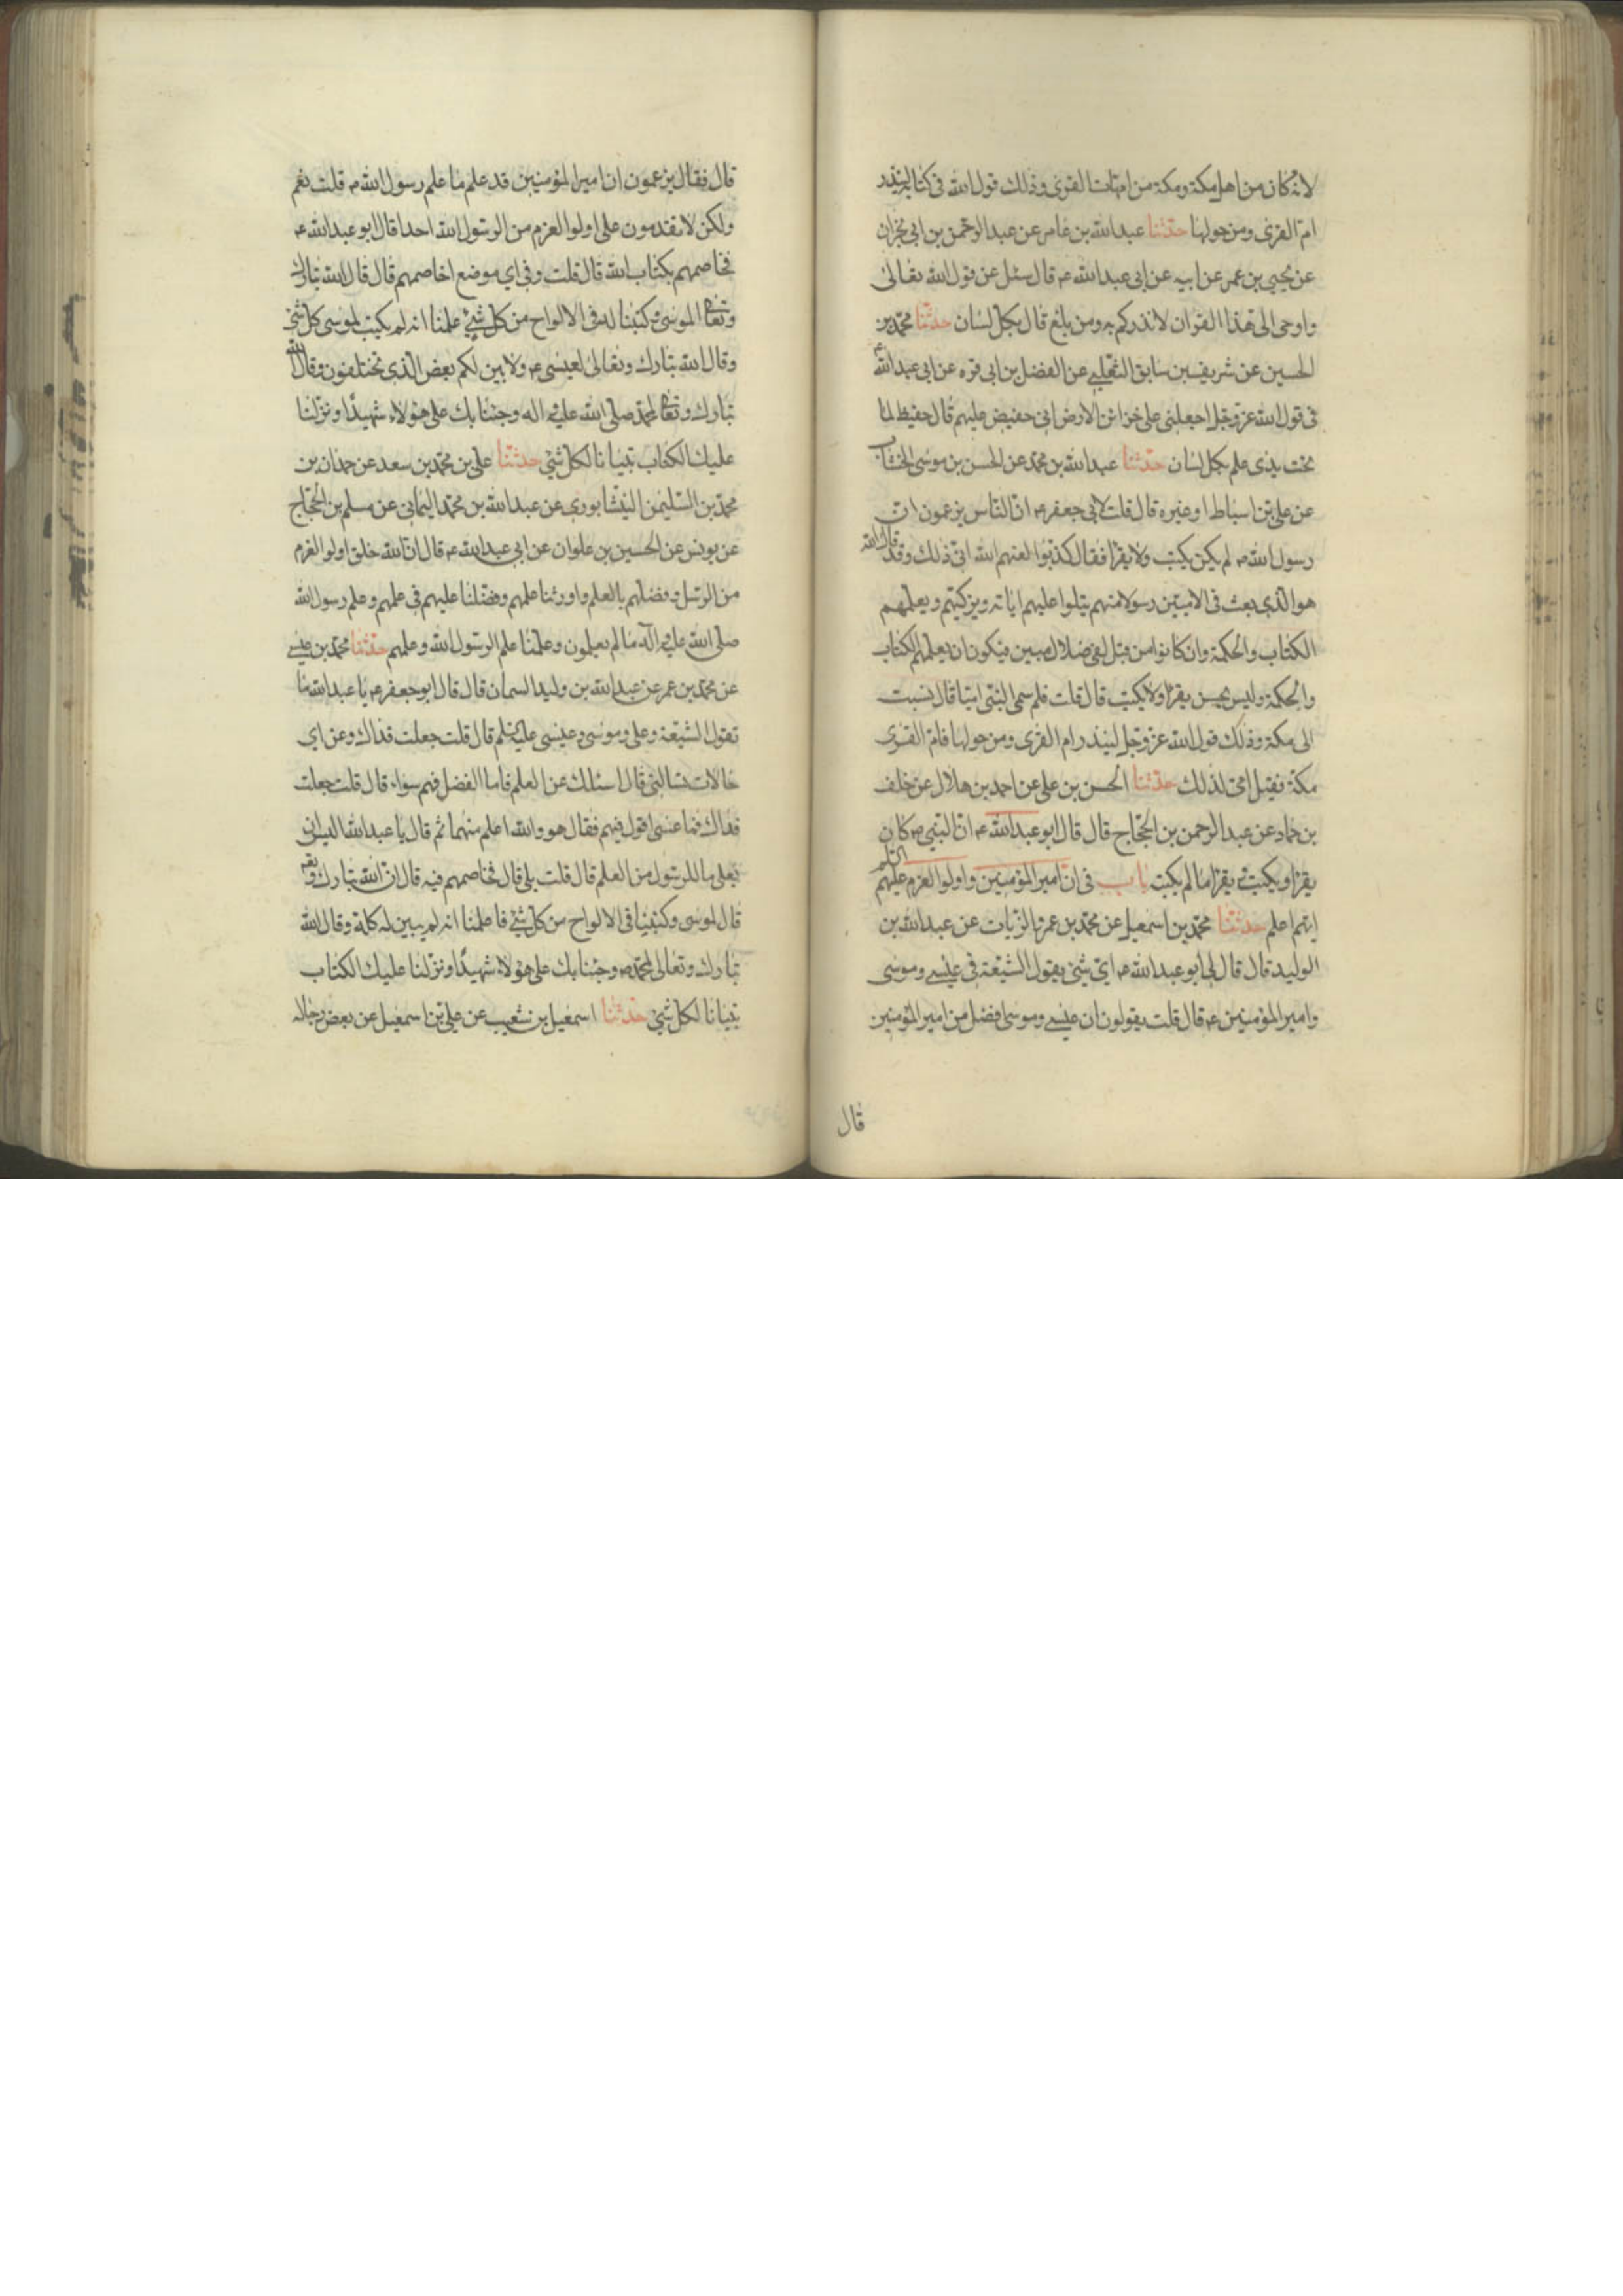 لانه كان من اهل مكة ومكة من امهات القرى وذلك قول الله فى كتابه لينذر
ام القرى ومن حولها حدثنا عبدالله بن عامر عن عبدالرحمن بن ابى نجران
عن يحيى بن عمر عن ابيه عن ابى عبدالله ع قال سئل عن قول الله تعالى
واوحى الى هذا القران لانذركم به ومن بلغ قال بكل لسان حدثنا محمد بن
الحسين عن شريف بن سابق التفليسى عن الفضل بن ابى قره عن ابى عبدالله ع
فى قول الله عز وجل اجعلنى على خزائن الارض انى حفيض عليهم قال حفيظ لما
تحت يدى علم بكل لسان حدثنا عبدالله بن محمد عن الحسن بن موسى الخشاب
عن على بن اسباط او غيره قال قلت لابى جعفر ع ان الناس يزعمون ان
رسول الله ص لم يكن يكتب ولا يقرا فقال كذبوا لعنهم الله انى ذلك وقد قال الله
هو الذى بعث فى الاميين رسولا منهم يتلوا عليهم اياته ويزكيهم ويعلمهم
الكتاب والحكمة وان كانوا من قبل لفى ضلال مبين فيكون ان يعلمهم الكتاب
والحكمة وليس يحسن يقرا ولا يكتب قال قلت فلم سمى النبى اميا قال نسبت
الى مكة وذلك قول الله عز وجل لينذر ام القرى ومن حولها فام القرى
مكة فقيل امى لذلك حدثنا الحسن بن على عن احمد بن هلال عن خلف
بن حماد عن عبدالرحمن بن الحجاج قال قال ابو عبدالله ع ان النبى ص كان
يقرا ويكتب ويقرا ما لم يكتب باب فى ان امير المؤمنين واولوا العزم عليهم السلم
ايهم اعلم حدثنا محمد بن اسمعيل عن محمد بن عمر الزيات عن عبدالله بن
الوليد قال قال لى ابو عبدالله ع اى شئ يقول الشيعة فى عيسى وموسى
وامير المؤمنين ع قال قلت يقولون ان عيسى وموسى افضل من امير المؤمنين
قال
قال فقال يزعمون ان امير المؤمنين قد علم ما علم رسول الله ص قلت نعم
ولكن لا يقدمون على اولوا العزم من الرسول الله احدا قال ابو عبدالله ع
فخاصمهم بكتاب الله قال قلت وفى اى موضع اخاصمهم قال قال الله تبارك
وتعالى لموسى وكتبنا له فى الالواح من كل شئ علمنا انه لم يكتب لموسى كل شئ
وقال الله تبارك وتعالى لعيسى ع ولابين لكم بعض الذى تختلفون وقال الله
تبارك وتعالى لمحمد صلى الله عليه واله وجئنا بك على هؤلاء شهيدا ونزلنا
عليك الكتاب تبيانا لكل شئ حدثنا على بن محمد بن سعد عن حمدان بن
محمد بن السليمن النيشابورى عن عبدالله بن محمد اليمانى عن مسلم بن الحجاج
عن يونس عن الحسين بن علوان عن ابى عبدالله ع قال ان الله خلق اولو العزم
من الرسل وفضلهم بالعلم واورثنا علمهم وفضلنا عليهم فى علمهم وعلم رسول الله
صلى الله عليه واله ما لم يعلمون وعلمنا علم الرسول الله وعلمهم حدثنا محمد بن عيسى
عن محمد بن عمر عن عبدالله بن وليد السمان قال قال ابو جعفر ع يا عبدالله ما
تقول الشيعة وعلى وموسى وعيسى عليه السلم قال قلت جعلت فداك وعن اى
حالات تسالنى قال اسئلك عن العلم فاما الفضل فهم سواء قال قلت جعلت
فداك فما عسى اقول فيهم فقال هو والله اعلم منهما ثم قال يا عبدالله اليس
يقولون ان لعلى ما للرسول من العلم قال قلت بلى قال فخاصمهم فيه قال ان الله تبارك وتعـ
قال لموسى وكتبنا فى الالواح من كل شئ فاعلمنا انه لم يبين له كله وقال الله
تبارك وتعالى لمحمد ص وجئنا بك على هؤلاء شهيدا ونزلنا عليك الكتاب
تبيانا لكل شئ حدثنا اسمعيل بن شعيب عن على بن اسمعيل عن بعض رجاله